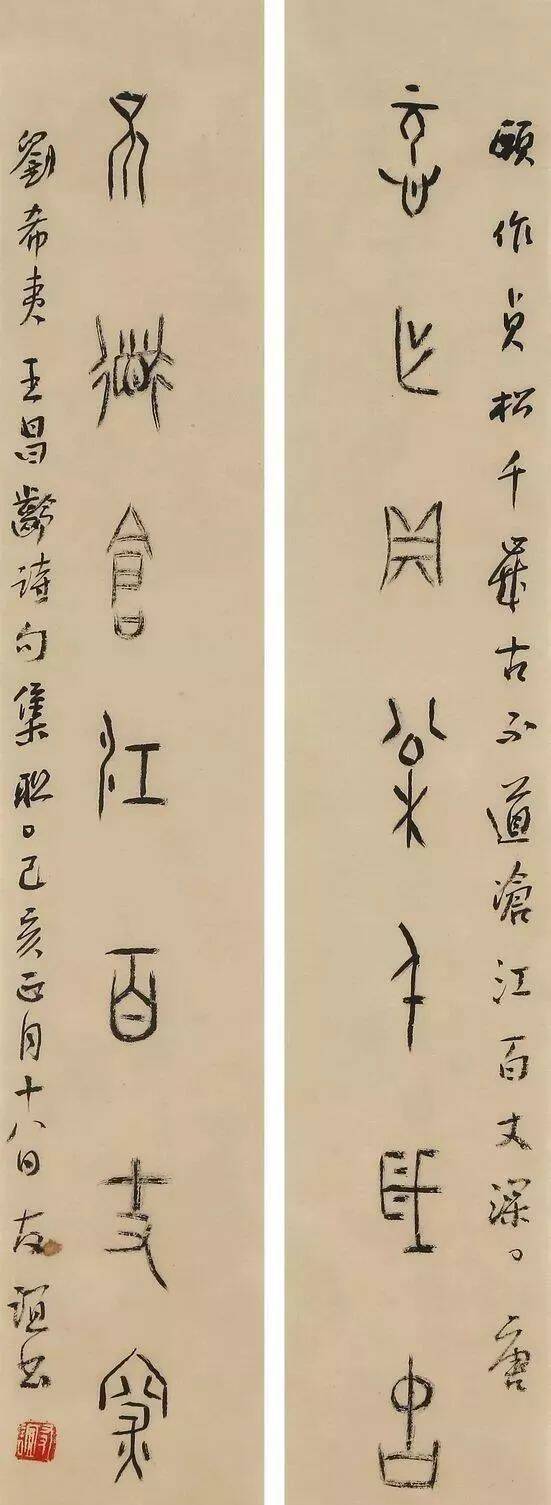 願作貞松千歲古不道滄江百丈深。唐
願作貞松千歲古
不道滄江百丈深
劉希夷王昌齡詩句集聯。己亥正月十八日友誼書